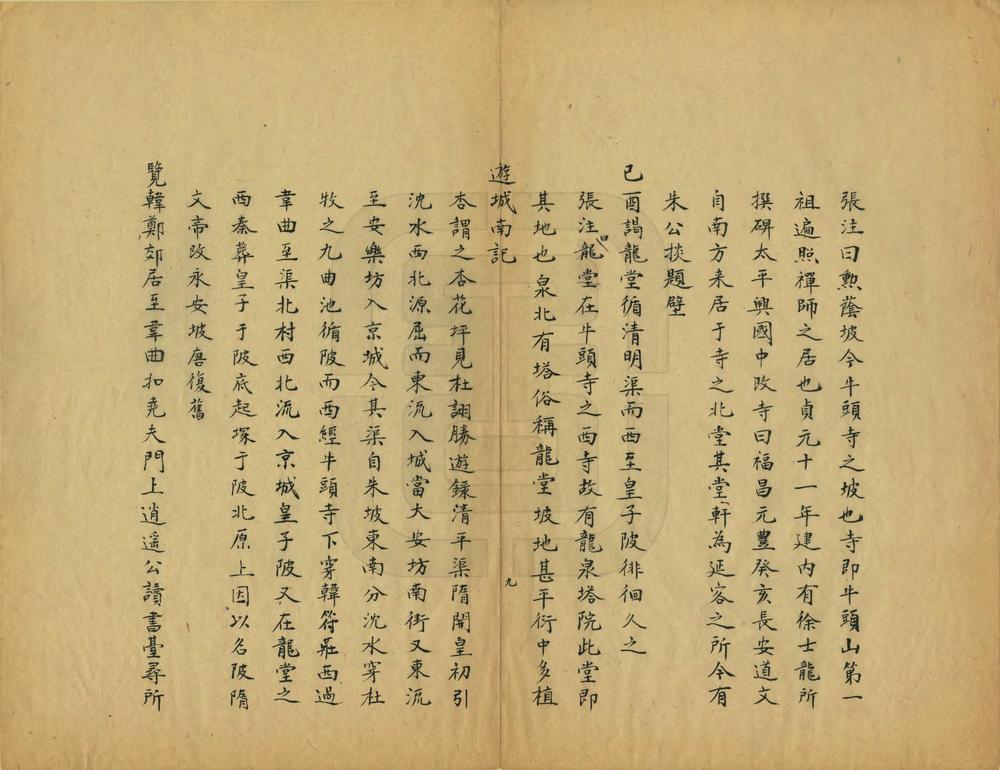 張注曰勲蔭坡今牛頭寺之坡也寺即牛頭山第一
祖遍照禪師之居也貞元十一年建內有徐士龍所
撰碑太平興國中改寺曰福昌元豊癸亥長安道文
自南方来居于寺之北堂其堂軒為延客之所今有
朱公掞題壁
己酉謁龍堂循清明渠而西至皇子陂徘徊久之
張注曰龍堂在牛頭寺之西寺故有龍泉塔院此堂即
其地也泉北有塔俗稱龍堂坡地甚平衍中多植
遊城南記
九
杏謂之杏花坪見杜詡勝遊錄清平渠隋開皇初引
沈水西北源屈而東流入城當大安坊南街又東流
至安樂坊入京城今其渠自朱坡東南分沈水穿杜
牧之九曲池循陂而西經牛頭寺下穿韓符莊西過
韋曲至渠北村西北流入京城皇子陂又在龍堂之
西秦葬皇子于陂底起塚于陂北原上因以名陂隋
文帝改永安坡唐復舊
覽韓鄭郊居至韋曲扣堯夫門上逍遥公讀書臺尋所